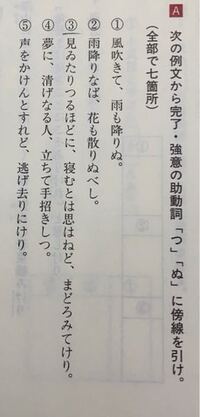 A 次の例文から完了・強意の助動詞「つ」「ぬ」に傍線を引け。
(全部で七箇所)
① 風吹きて、雨も降りぬ。
② 雨降りなば、花も散りぬべし。
③ 見ゐたりつるほどに、寝むとは思はねど、まどろみてけり。
④ 夢に、清げなる人、立ちて手招きしつ。
⑤ 声をかけんとすれど、逃げ去りにけり。